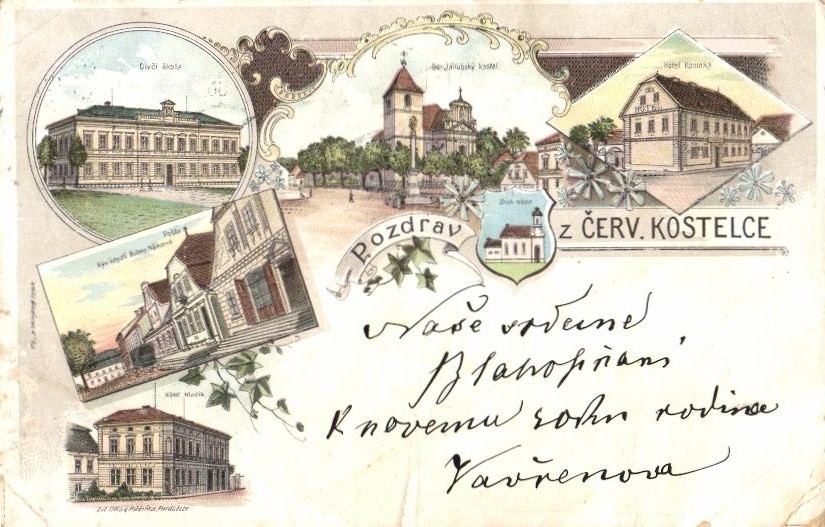 Dívčí škola
Sv. Jakubský kostel
Hotel
HOTEL
Znak města
Pozdrav
z ČERV. KOSTELCE
Pošta
Býv. obydlí Boženy Němcové
Naše srdečné
Blahopřání
K novemu roku rodina
Vavřenova
Hôtel
Lit. Otto & Růžička, Pardubice